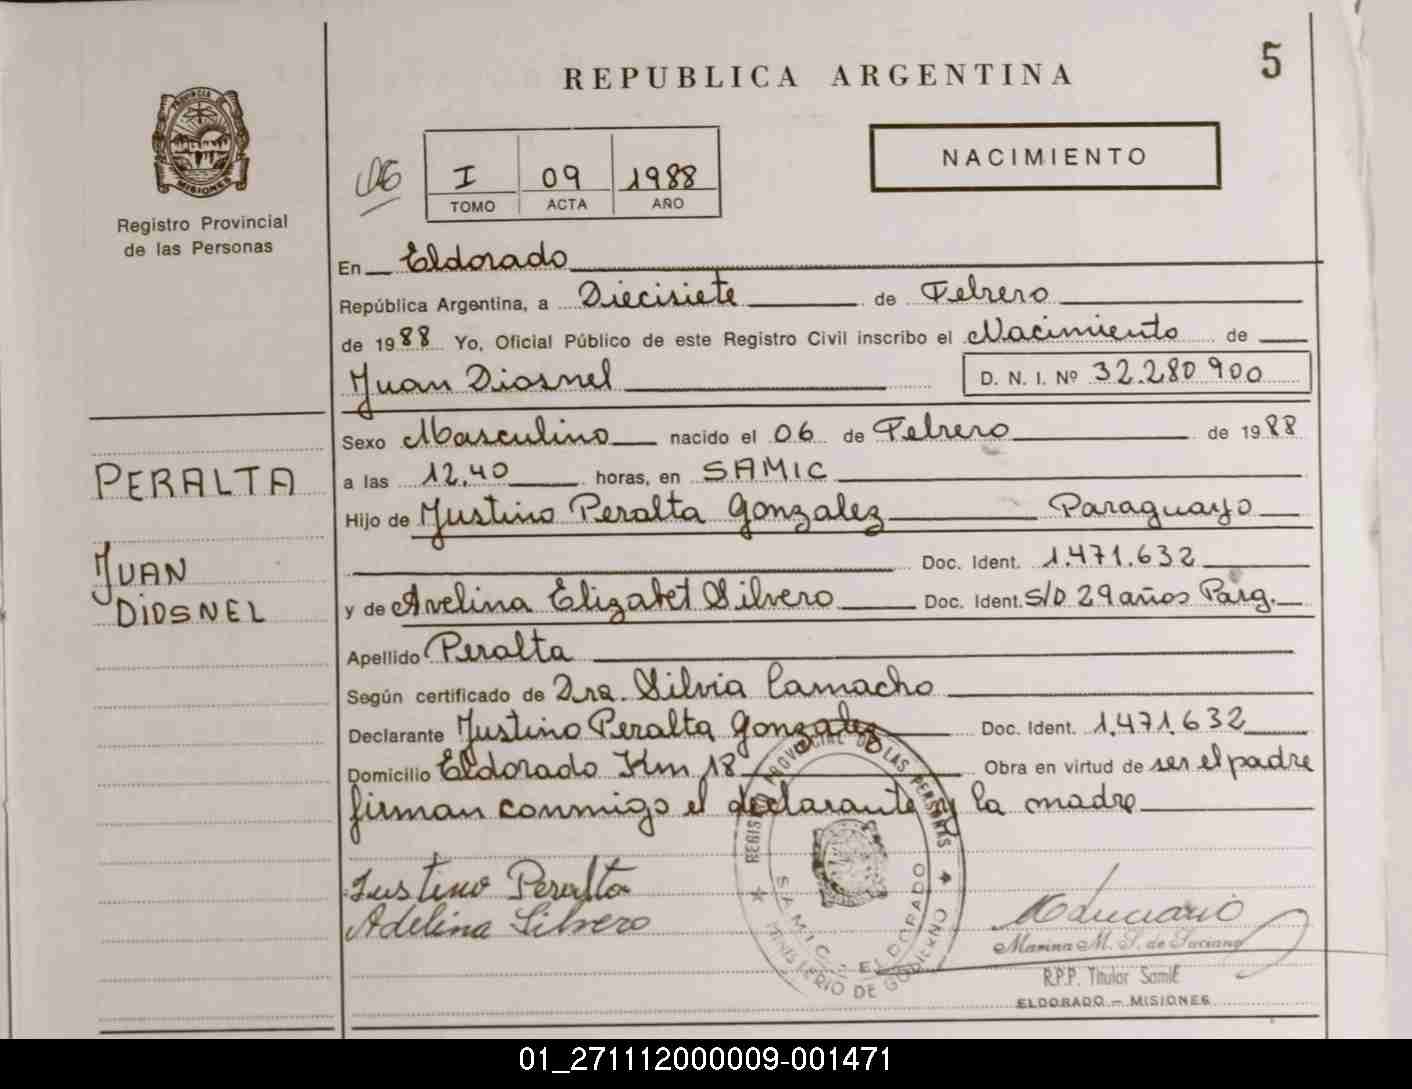 REPUBLICA ARGENTINA
5
PROVINCIA DE
MISIONES
Registro Provincial
de las Personas
NACIMIENTO
06
I 09 1988
TOMO ACTA AÑO
En Eldorado
República Argentina, a Diecisiete de Febrero
de 1988 Yo, Oficial Público de este Registro Civil inscribo el Nacimiento de
Juan Diosnel D. N. I. Nº 32.280900
Sexo Masculino nacido el 06 de Febrero de 1988
a las 12,40 horas, en SAMIC
Hijo de Justino Peralta Gonzalez Paraguayo
Doc. Ident. 1.471.632
y de Avelina Elizabet Silvero Doc. Ident. S/D 29 años Parg.
Apellido Peralta
Según certificado de Dra. Silvia Camacho
Declarante Justino Peralta Gonzalez Doc. Ident. 1,471.632
Domicilio Eldorado Km 18 Obra en virtud de ser el padre
firman conmigo el declarante y la madre
PERALTA
JUAN
DIOSNEL
Justino Peralta
Adelina Silvero
REGISTRO PROVINCIAL DE LAS PERSONAS
S.A.M.I.C. ELDORADO
MINISTERIO DE GOBIERNO
Marina M. S. de Luciano
R.P.P. Titular SamiC
ELDORADO - MISIONES
01_271112000009-001471